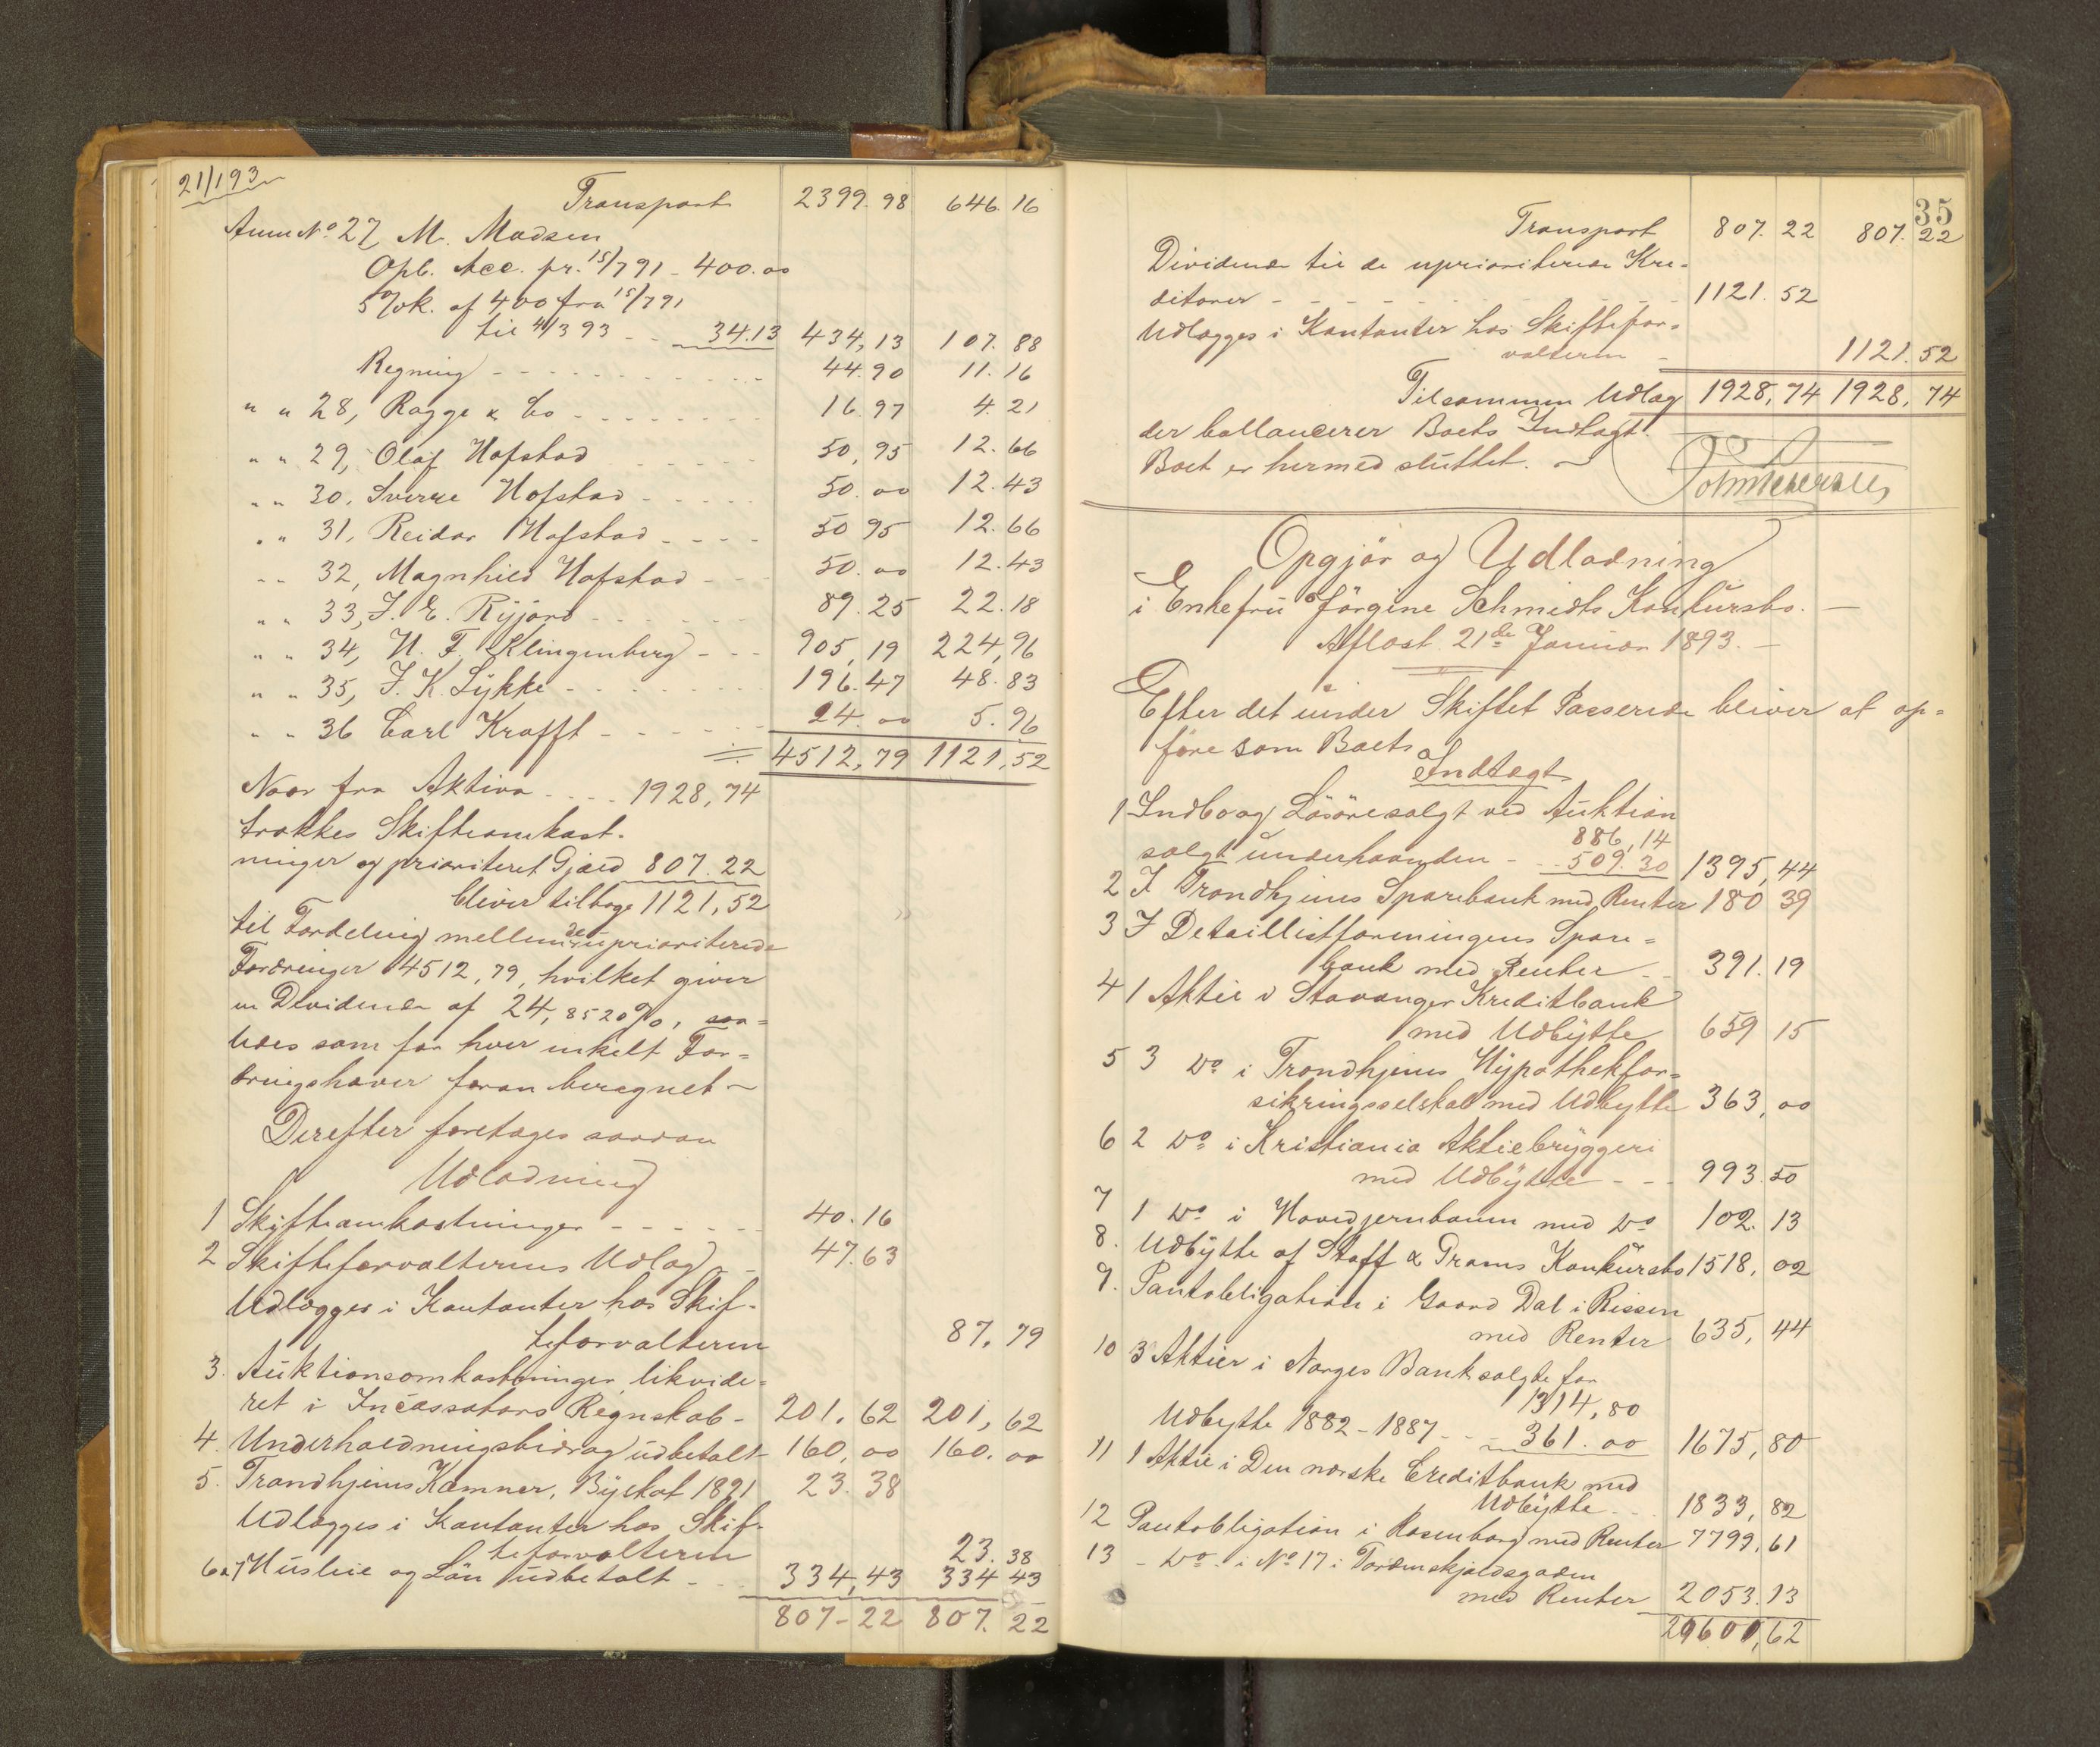 21/1 93
Transport 2399.98 646.16
Anm No 27, M. Madsen
Opb. Acc. pr. 15/7 91 - 400.00
5% R. af 400 fra 15/7 91
til 4/3 93 - - 34.13 434,13 107.88
Regning - - - - 44.90 11.16
" " 28, Ragge & Co - - - - 16.97 4.21
" " 29, Olaf Hofstad - - - - 50,95 12.66
" " 30, Sverre Hofstad - - - - 50.00 12.43
" " 31, Reidar Hofstad - - - - 50 95 12.66
" " 32, Magnhild Hofstad - - - 50.00 12.43
" " 33, J. E. Ryjord - - - - 89.25 22.18
" " 34, H. F. Klingenberg - - - 905,19 224,96
" " 35, J. K. Lykke - - - - 196.47 48.83
" " 36 Carl Krafft - - - - 24.00 5.96
4512,79 1121,52
Naar fra Aktiva - - - - 1928,74
trækkes Skifteomkost-
ninger og prioriteret Gjæld 807.22
bliver tilbage 1121,52
til Fordeling mellem de uprioriterede
Fordringer 4512,79, hvilket giver
en Dividende af 24,8520%, saa=
ledes som for hver enkelt For=
dringshaver foran beregnet -
Derefter foretages saadan
Udlodning
1 Skifteomkostninger - - - - 40.16
2 Skifteforvalterens Udlæg - - 47.63
Udlægges i Kontanter hos Skif-
teforvalteren 87.79
3. Auktionsomkostninger likvide=
ret i Incassators Regnskab - 201.62 201,62
4. Underholdningsbidrag udbetalt 160,00 160.00
5. Trondhjems Kæmner, Byskat 1891 23.38
Udlægges i Kontanter hos Skif-
teforvalteren 23.38
6 & 7 Husleie og Løn udbetalt - - 334,43 334 43
807-22 807.22
35
Transport 807.22 807.22
Dividende til de uprioriterede Kre-
ditorer - - - - 1121.52
Udlægges i Kontanter hos Skiftefor=
valteren - 1121.52
Tilsammen Udlæg 1928,74 1928,74
der ballancerer Boets Indtægt.
Boet er hermed sluttet. -
Opgjör og Udlodning
i Enkefru Jörgine Schmidts Konkursbo. -
Aflæst 21de Januar 1893. -
Efter det under Skiftet Passerede bliver at op=
føre som Boets
Indtægt
1 Indbo og Lösöre solgt ved Auktion
886,14
solgt underhaanden - - 509.30 1395,44
2 I Trondhjems Sparebank med Renter 180 39
3 I Detaillistforeningens Spare=
bank med Renter - - 391.19
4 1 Aktie i Stavanger Kreditbank
med Udbytte 659 15
5 3 Do i Trondhjems Hypothekfor=
sikringsselskab med Udbytte 363,00
6 2 Do i Kristiania Aktiebryggeri
med Udbytte - - - 993.50
7 1 Do i Hovedjernbanen med Do 102.13
8. Udbytte af Staff & Prams Konkursbo 1518,02
9. Pantobligation i Gaard Dal i Rissen
med Renter 635,44
10 3 Aktier i Norges Bank solgte for
1314,80
Udbytte 1882-1887 - - - 361.00 1675,80
11 1 Aktie i Den norske Creditbank med
Udbytte - - - 1833,82
12 Pantobligation i Rosenborg med Renter 7799,61
13 - Do - i No 17 i Tordenskjoldsgaden
med Renter 2053.13
29600,62